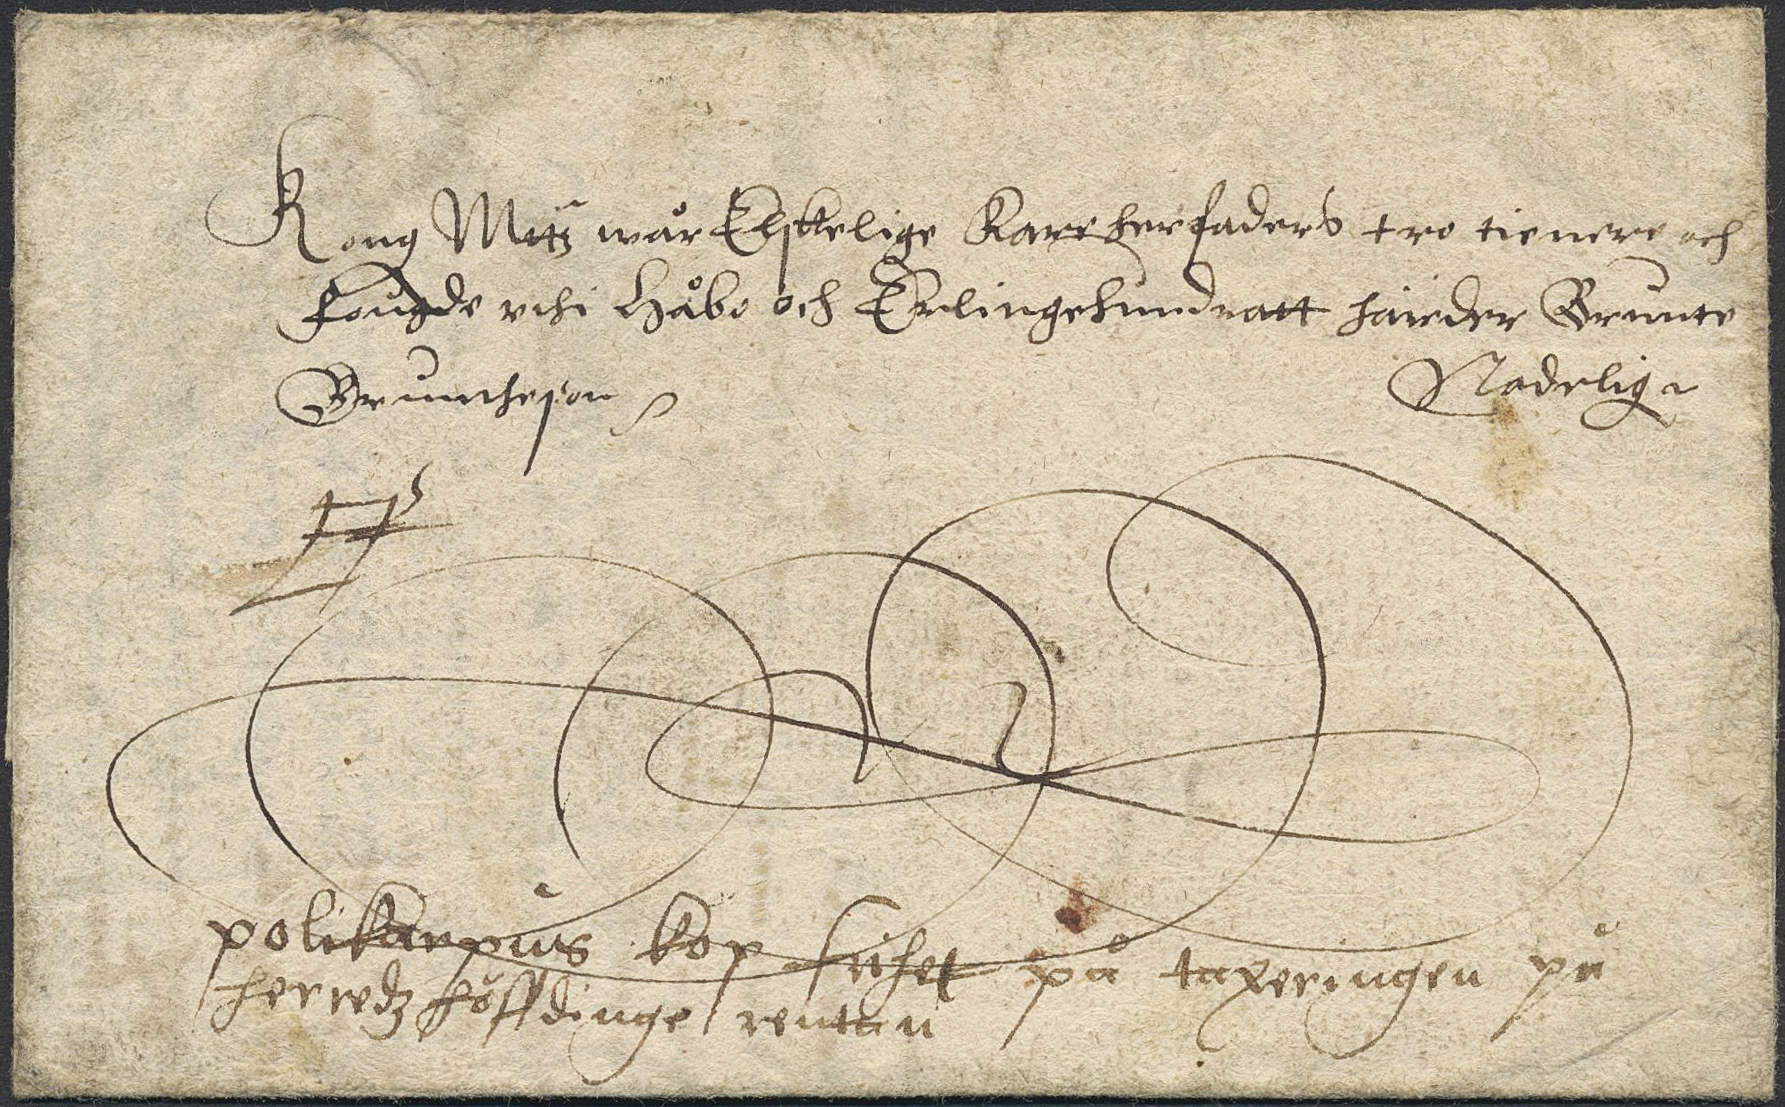 Kong Mttz wår Elskelige Kare herfaders tro tienere och
fougde vthi Håbo och Erlingehundratt härder Brunte
Bruntheson
Nadelig
polikarpus kop frihet på taxeringen på
herredz höffdinge rentan